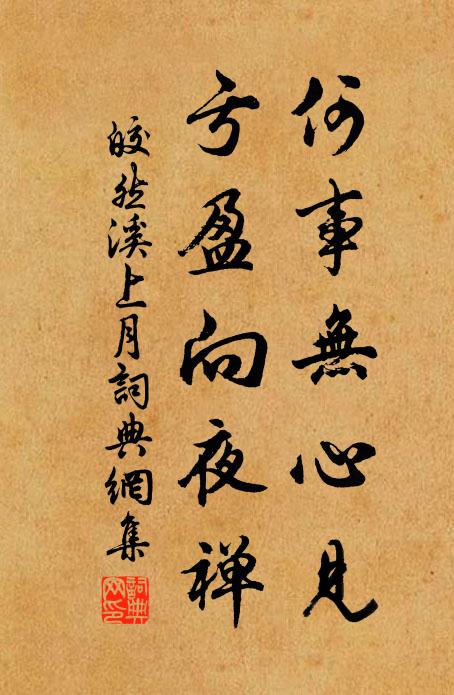 何事無心見
亏盈向夜禅
皎然溪上月詞典網集
詞典網印